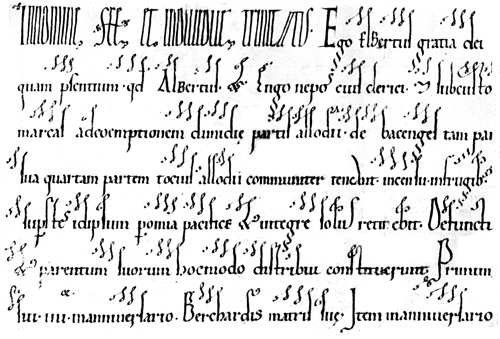 INNOMINE, SCE, ET INDIVIDUE, TRINITATIS. Ego Elbertus gratia dei
quam psentium. qd Albertus. & Engo nepos eius clerici. ⁊ subcusto
marcas adcoemptionem dimidię partis allodii. de bacengel tam pa
sua quartam partem tocius allodii communiter tenebit. incensu. infrugib.
supste idipsum pomia pacifice & integre solus retinebit. Defuncti
& parentum suorum hocmodo distribui constituerunt. Primum
sui. iiii. inanniuersario. Berchardis matris suę. Item inanniuersario